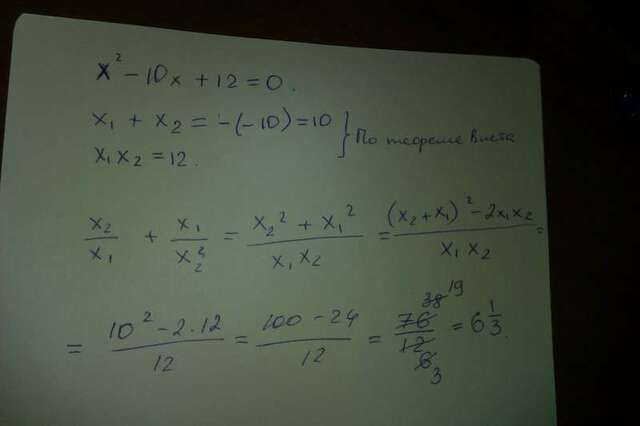 x² - 10x + 12 = 0.
x₁ + x₂ = -(-10) = 10
x₁x₂ = 12.
} По теореме Виета
x₂/x₁ + x₁/x₂ = (x₂² + x₁²)/(x₁x₂) = ((x₂+x₁)² - 2x₁x₂)/(x₁x₂) =
= (10² - 2·12)/12 = (100 - 24)/12 = 76/12 38 19 6 3 = 6 1/3.